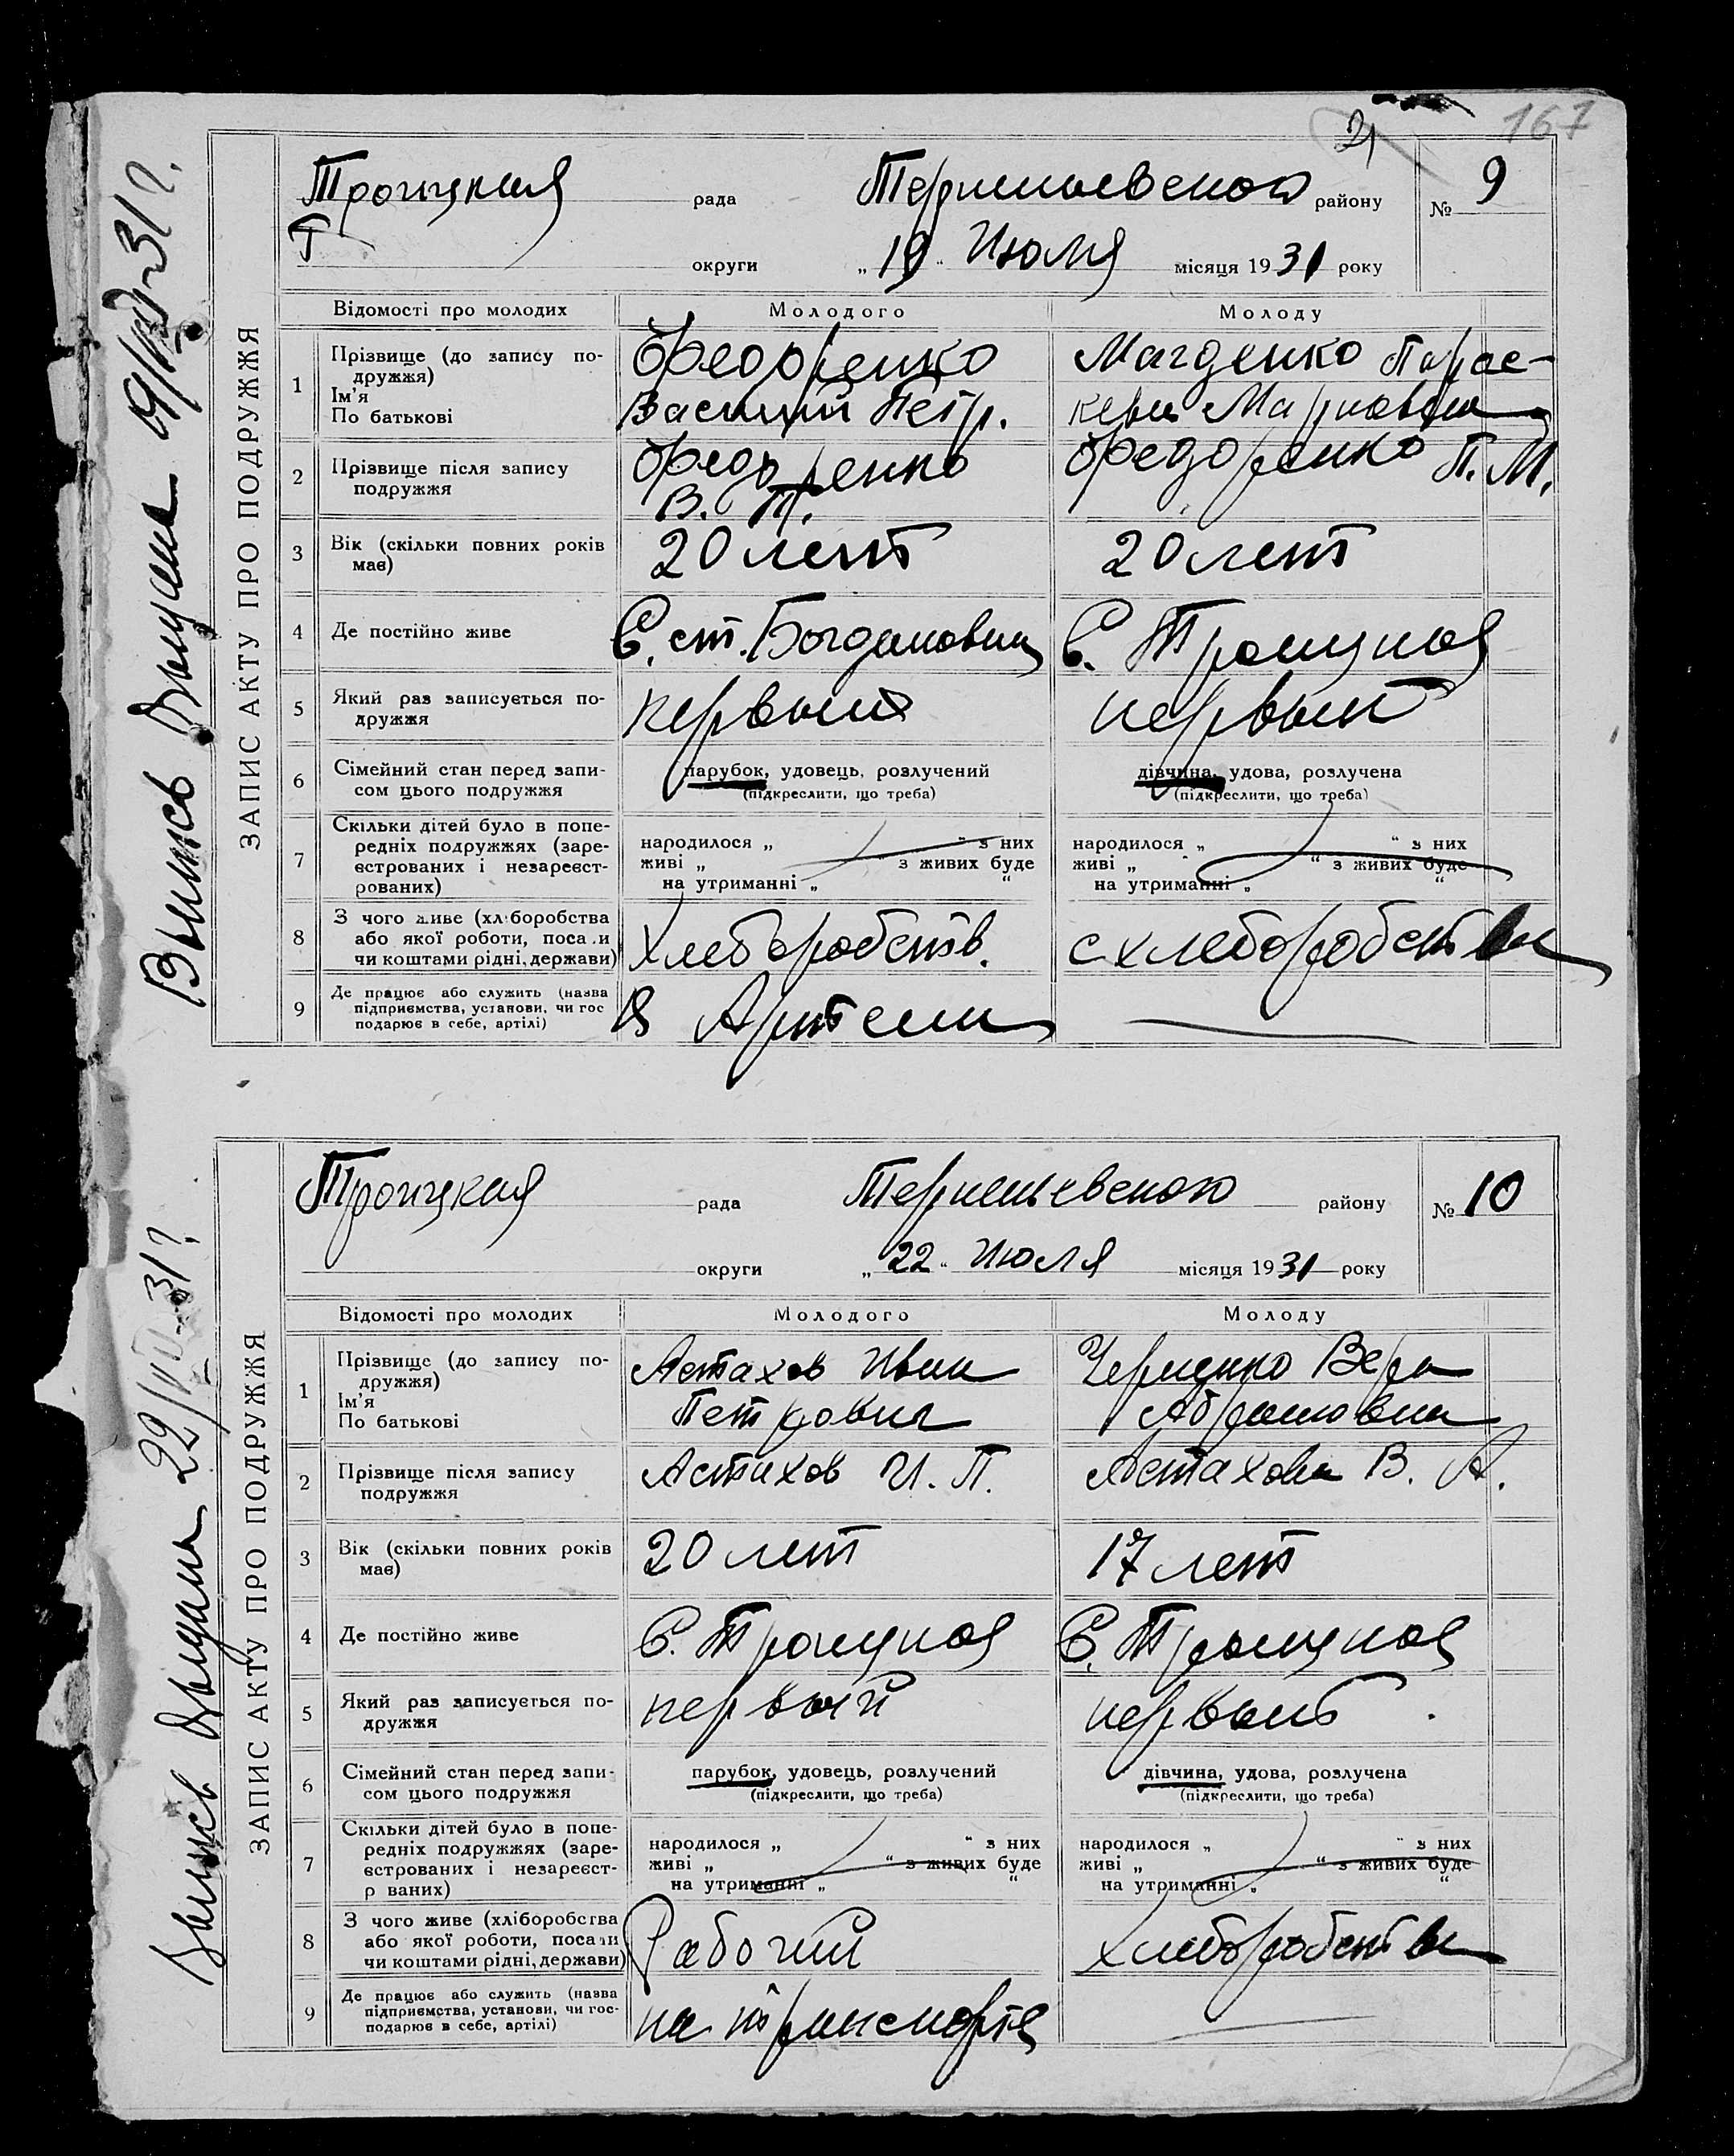 167
21
ЗАПИС АКТУ ПРО ПОДРУЖЖЯ
Выпись выдана 19/VII-31 г.
Троицкая рада Терпеньевского району № 9
округи „19“ Июля місяця 1931 року
Відомості про молодих Молодого Молоду
1 Прізвище (до запису по-
дружжя)
Ім'я
По батькові
Федоренко
Василий Петр.
Магденко Парас-
кева Марковна
2 Прізвище після запису
подружжя
Федоренко
В. П.
Федоренко П. М.
3 Вік (скільки повних років
має)
20 лет
20 лет
4 Де постійно живе
С. ст. Богдановка
С. Троицкое
5 Який раз записується по-
дружжя
первый
первый
6 Сімейний стан перед запи-
сом цього подружжя
парубок, удовець, розлучений
(підкреслити, що треба)
дівчина, удова, розлучена
(підкреслити, що треба)
7 Скільки дітей було в попе-
редніх подружжях (заре-
єстрованих і незареєст-
рованих)
народилося „ “ з них
живі „ “ з живих буде
на утриманні „ “
народилося „ “ з них
живі „ “ з живих буде
на утриманні „ “
8 З чого живе (хліборобства
або якої роботи, посади
чи коштами рідні, держави)
хлеборобств.
с хлеборобства
9 Де працює або служить (назва
підприємства, установи, чи гос
подарює в себе, артілі)
В Артели
ЗАПИС АКТУ ПРО ПОДРУЖЖЯ
Выпись выдана 22/VII-31 г.
Троицкая рада Терпеньевского району № 10
округи „22“ Июля місяця 1931 року
Відомості про молодих Молодого Молоду
1 Прізвище (до запису по-
дружжя)
Ім'я
По батькові
Астахов Иван
Петрович
Черненко Вера
Абрамовна
2 Прізвище після запису
подружжя
Астахов И. П.
Астахова В. А.
3 Вік (скільки повних років
має)
20 лет
17 лет
4 Де постійно живе
С. Троицкое
С. Троицкое
5 Який раз записується по-
дружжя
первый
первый
6 Сімейний стан перед запи-
сом цього подружжя
парубок, удовець, розлучений
(підкреслити, що треба)
дівчина, удова, розлучена
(підкреслити, що треба)
7 Скільки дітей було в попе-
редніх подружжях (заре-
єстрованих і незареєст-
р ваних)
народилося „ “ з них
живі „ “ з живих буде
на утриманні „ “
народилося „ “ з них
живі „ “ з живих буде
на утриманні „ “
8 З чого живе (хліборобства
або якої роботи, посади
чи коштами рідні, держави)
Рабочий
хлеборобства
9 Де працює або служить (назва
підприємства, установи, чи гос-
подарює в себе, артілі)
на транспорте